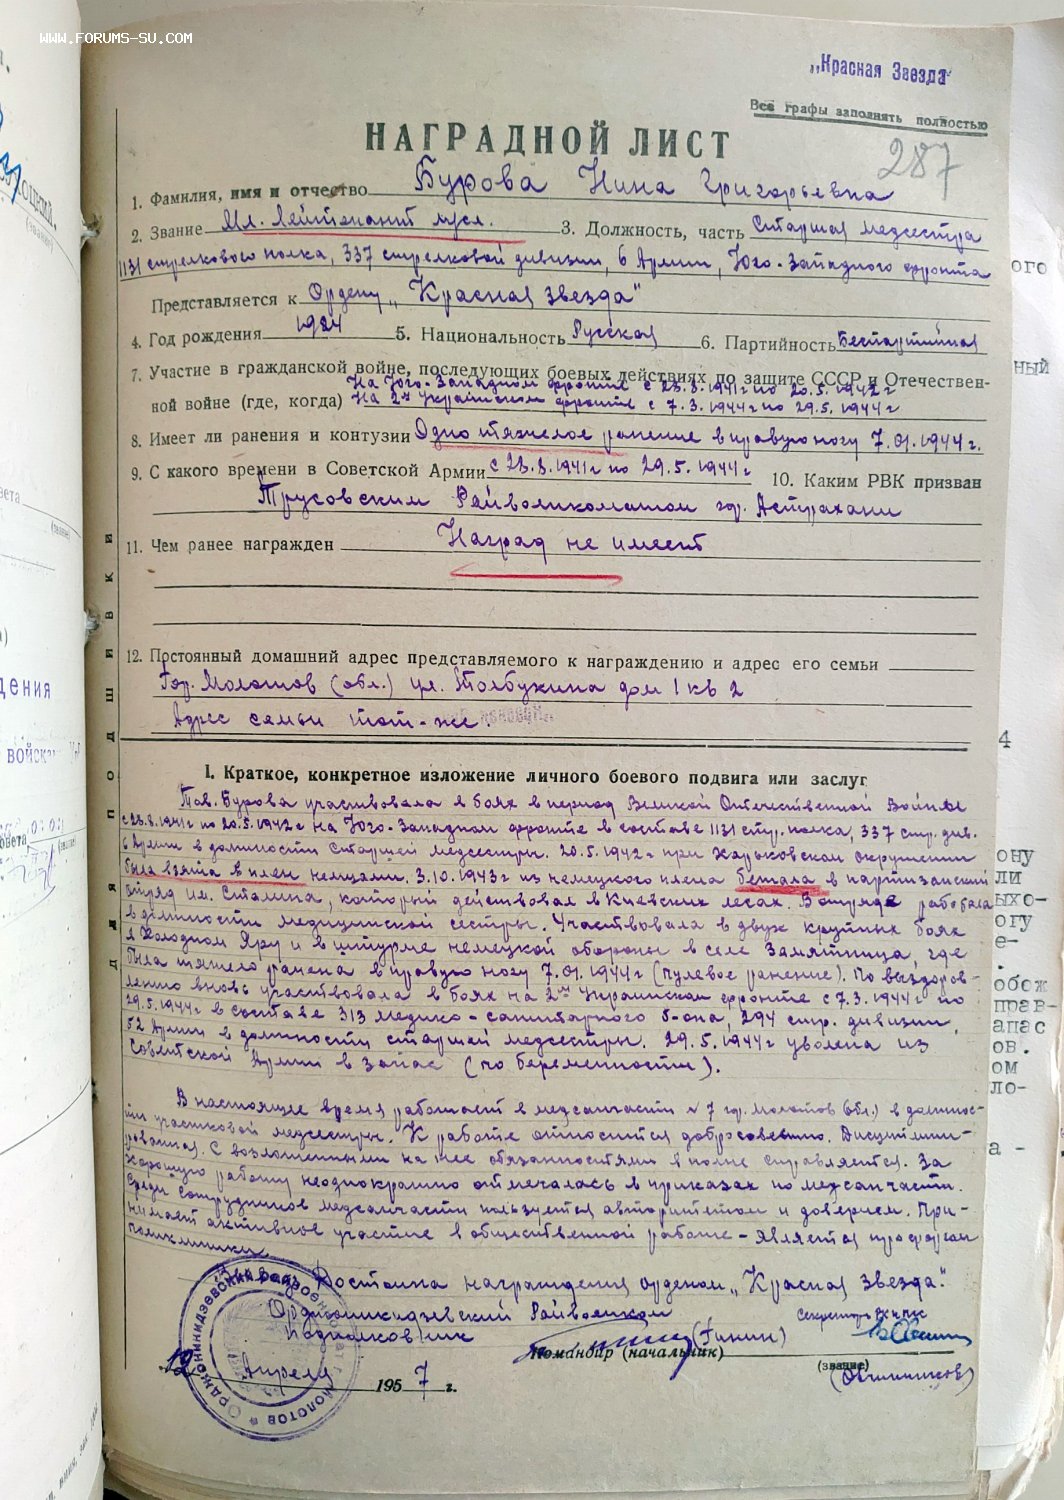 WWW.FORUMS-SU.COM
„Красная Звезда"
Все графы заполнять полностью
НАГРАДНОЙ ЛИСТ
287
1. Фамилия, имя и отчество Бурова Нина Григорьевна
2. Звание Мл. Лейтенант м/сл. 3. Должность, часть Старшая медсестра
1131 стрелкового полка, 337 стрелковой дивизии, 6 Армии, Юго-Западного фронта
Представляется к Ордену „Красная Звезда"
4. Год рождения 1924 5. Национальность Русская 6. Партийность Беспартийная
7. Участие в гражданской войне, последующих боевых действиях по защите СССР и Отечествен-
На Юго-Западном фронте с 23.8.1941г по 20.5.1942г
ной войне (где, когда) На 2м Украинском фронте с 7.3.1944г по 29.5.1944г
8. Имеет ли ранения и контузии Одно тяжелое ранение в правую ногу 7.01.1944г.
9. С какого времени в Советской Армии с 23.8.1941г по 29.5.1944г 10. Каким РВК призван
Трусовским Райвоенкоматом гор. Астрахани
11. Чем ранее награжден Наград не имеет
12. Постоянный домашний адрес представляемого к награждению и адрес его семьи
Гор. Молотов (обл.) ул. Толбухина дом 1 кв 2
Адрес семьи тот-же.
для подшивки
I. Краткое, конкретное изложение личного боевого подвига или заслуг
Тов. Бурова участвовала в боях в период Великой Отечественной Войны
с 23.8.1941г по 20.5.1942г на Юго-Западном фронте в составе 1131 стр. полка, 337 стр. див.
6 Армии в должности Старшей медсестры. 20.5.1942г при Харьковском окружении
была взята в плен немцами. 3.10.1943г из немецкого плена бежала в партизанский
отряд им. Сталина, который действовал в Киевских лесах. В отряде работала
в должности медицинской сестры. Участвовала в двух крупных боях
в Холодном Яру и в штурме немецкой обороны в селе Замятница, где
была тяжело ранена в правую ногу 7.01.1944г (пулевое ранение). По выздоров-
лению вновь участвовала в боях на 2ом Украинском фронте с 7.3.1944г по
29.5.1944г в составе 313 медико-санитарного б-она, 294 стр. дивизии,
52 Армии в должности старшей медсестры. 29.5.1944г уволена из
Советской Армии в запас (по беременности).
В настоящее время работает в медсанчасти № 7 гор. Молотов (обл.) в должнос-
ти участковой медсестры. К работе относится добросовестно. Дисциплини-
рованная. С возложенными на нее обязанностями вполне справляется. За
хорошую работу неоднократно отмечалась в приказах по медсанчасти.
Среди сотрудников медсанчасти пользуется авторитетом и доверием. При-
нимает активное участие в общественной работе - является профоргом
поликлиники.
Вывод: Достойна награждения орденом „Красная Звезда".
Орджоникидзевский Райвоенком
подполковник (Гинин) Секретарь РК КПСС
Командир (начальник)
(звание)
(Овчинников)
12 Апреля 1957 г.
Орджоникидзевский
Молотов